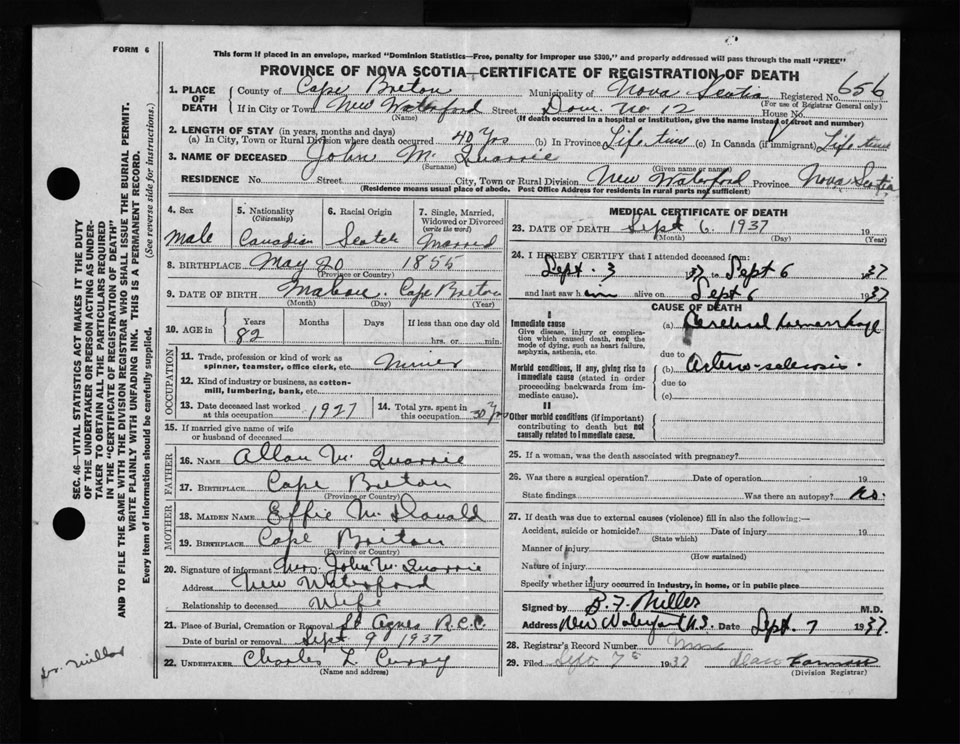 FORM 6
This form if placed in an envelope, marked "Dominion Statistics—Free, penalty for improper use $300," and properly addressed will pass through the mail "FREE"
PROVINCE OF NOVA SCOTIA—CERTIFICATE OF REGISTRATION OF DEATH
1. PLACE OF DEATH
County of Cape Breton Municipality of Nova Scotia Registered No. 656
(For use of Registrar General only)
If in City or Town New Waterford Street Dom. No 12 House No.
(Name) (If death occurred in a hospital or institution, give the name instead of street and number)
2. LENGTH OF STAY (in years, months and days)
(a) In City, Town or Rural Division where death occurred 40 Yrs (b) In Province Life time (c) In Canada (if immigrant) Life time
3. NAME OF DECEASED John Mc Quarrie
(Surname) (Given name or names)
RESIDENCE No. Street City, Town or Rural Division New Waterford Province Nova Scotia
(Residence means usual place of abode. Post Office Address for residents in rural parts not sufficient)
4. Sex
Male
5. Nationality
(Citizenship)
Canadian
6. Racial Origin
Scotch
7. Single, Married, Widowed or Divorced
(write the word)
Married
8. BIRTHPLACE May 20 1855
(Province or Country)
9. DATE OF BIRTH Mabou. Cape Breton
(Month) (Day) (Year)
10. AGE in Years Months Days If less than one day old
82 hrs. or min.
OCCUPATION
11. Trade, profession or kind of work as spinner, teamster, office clerk, etc. Miner
12. Kind of industry or business, as cotton-mill, lumbering, bank, etc.
13. Date deceased last worked at this occupation 1927
14. Total yrs. spent in this occupation
15. If married give name of wife or husband of deceased
FATHER
16. NAME Allan Mc Quarrie
17. BIRTHPLACE Cape Breton
(Province or Country)
MOTHER
18. MAIDEN NAME Effie McDonald
19. BIRTHPLACE Cape Breton
(Province or Country)
20. Signature of informant Mrs. John McQuarrie
Address New Waterford
Relationship to deceased Wife
21. Place of Burial, Cremation or Removal St Agnes R.C.C.
Date of burial or removal Sept 9 1937
22. UNDERTAKER Charles L. Curry
(Name and address)
MEDICAL CERTIFICATE OF DEATH
23. DATE OF DEATH Sept 6. 1937 19
(Month) (Day) (Year)
24. I HEREBY CERTIFY that I attended deceased from:
Sept. 3 1937 Sept 6 1937
and last saw him alive on Sept 6 1937
CAUSE OF DEATH
I
Immediate cause
Give disease, injury or complication which caused death, not the mode of dying, such as heart failure, asphyxia, asthenia, etc.
(a) Cerebral hemorrhage
due to
Morbid conditions, if any, giving rise to immediate cause (stated in order proceeding backwards from immediate cause).
(b) Arterio-sclerosis.
due to
(c)
II
Other morbid conditions (if important) contributing to death but not causally related to immediate cause.
25. If a woman, was the death associated with pregnancy?
26. Was there a surgical operation? Date of operation 19
State findings Was there an autopsy? No.
27. If death was due to external causes (violence) fill in also the following:—
Accident, suicide or homicide? Date of injury 19
(State which)
Manner of injury
(How sustained)
Nature of injury
Specify whether injury occurred in industry, in home, or in public place
Signed by B. F. Miller M.D.
Address New Waterford N.S. Date Sept. 7 1937.
28. Registrar's Record Number
29. Filed Sept 7th 1937
(Division Registrar)
SEC. 46—VITAL STATISTICS ACT MAKES IT THE DUTY
OF THE UNDERTAKER OR PERSON ACTING AS UNDER-
TAKER TO OBTAIN ALL THE PARTICULARS REQUIRED
IN THE "CERTIFICATE OF REGISTRATION OF DEATH"
AND TO FILE THE SAME WITH THE DIVISION REGISTRAR WHO SHALL ISSUE THE BURIAL PERMIT.
WRITE PLAINLY WITH UNFADING INK. THIS IS A PERMANENT RECORD.
Every item of information should be carefully supplied.
(See reverse side for instructions.)
Dr. Miller